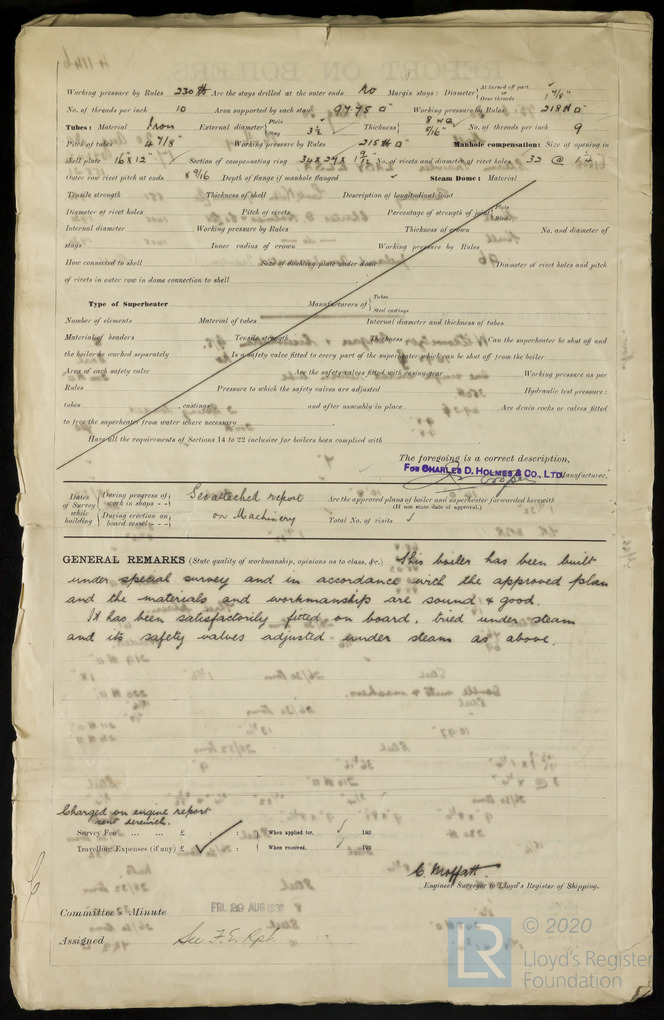 Working pressure by Rules 230 lb Are the stays drilled at the outer ends No Margin stays: Diameter { At turned off part, or Over threads 1 7/8"
No. of threads per inch 10 Area supported by each stay 97.75 □" Working pressure by Rules 218 lb □"
Tubes: Material Iron External diameter { Plain Stay 3 1/2 Thickness { 8 WG 5/16" No. of threads per inch 9
Pitch of tubes 4 7/8" Working pressure by Rules 215 lb □" Manhole compensation: Size of opening in
shell plate 16 x 12" Section of compensating ring No. of rivets and diameter of rivet holes 32 @ 1 1/4"
Outer row rivet pitch at ends 8 9/16 Depth of flange if manhole flanged Steam Dome: Material
Tensile strength Thickness of shell Description of longitudinal joint
Diameter of rivet holes Pitch of rivets Percentage of strength of joint { Plate Rivets
Internal diameter Working pressure by Rules Thickness of crown No. and diameter of
stays Inner radius of crown Working pressure by Rules
How connected to shell Size of doubling plate under dome Diameter of rivet holes and pitch
of rivets in outer row in dome connection to shell
Type of Superheater Manufacturers of { Tubes Steel castings
Number of elements Material of tubes Internal diameter and thickness of tubes
Material of headers Tensile strength Thickness Can the superheater be shut off and
the boiler be worked separately Is a safety valve fitted to every part of the superheater which can be shut off from the boiler
Area of each safety valve Are the safety valves fitted with easing gear Working pressure as per
Rules Pressure to which the safety valves are adjusted Hydraulic test pressure:
tubes , castings and after assembly in place Are drain cocks or valves fitted
to free the superheater from water where necessary
Have all the requirements of Sections 14 to 22 inclusive for boilers been complied with
The foregoing is a correct description,
FOR CHARLES D. HOLMES & CO., LTD. Manufacturer.
Dates of Survey while building { During progress of work in shops - - During erection on board vessel - - - } See attached report on Machinery
Are the approved plans of boiler and superheater forwarded herewith
(If not state date of approval.)
Total No. of visits
GENERAL REMARKS (State quality of workmanship, opinions as to class, &c.) This boiler has been built
under special survey and in accordance with the approved plan
and the materials and workmanship are sound & good.
It has been satisfactorily fitted on board, tried under steam
and its safety valves adjusted under steam as above.
Charged on engine report
sent herewith.
Survey Fee ... ... £ : : When applied for, 192
Travelling Expenses (if any) £ : : When received, 192
C. Moffatt.
Engineer Surveyor to Lloyd's Register of Shipping.
Committee's Minute FRI. 29 AUG 1930
Assigned See F.E. Rpt.
© 2020
LR
Lloyd's Register
Foundation